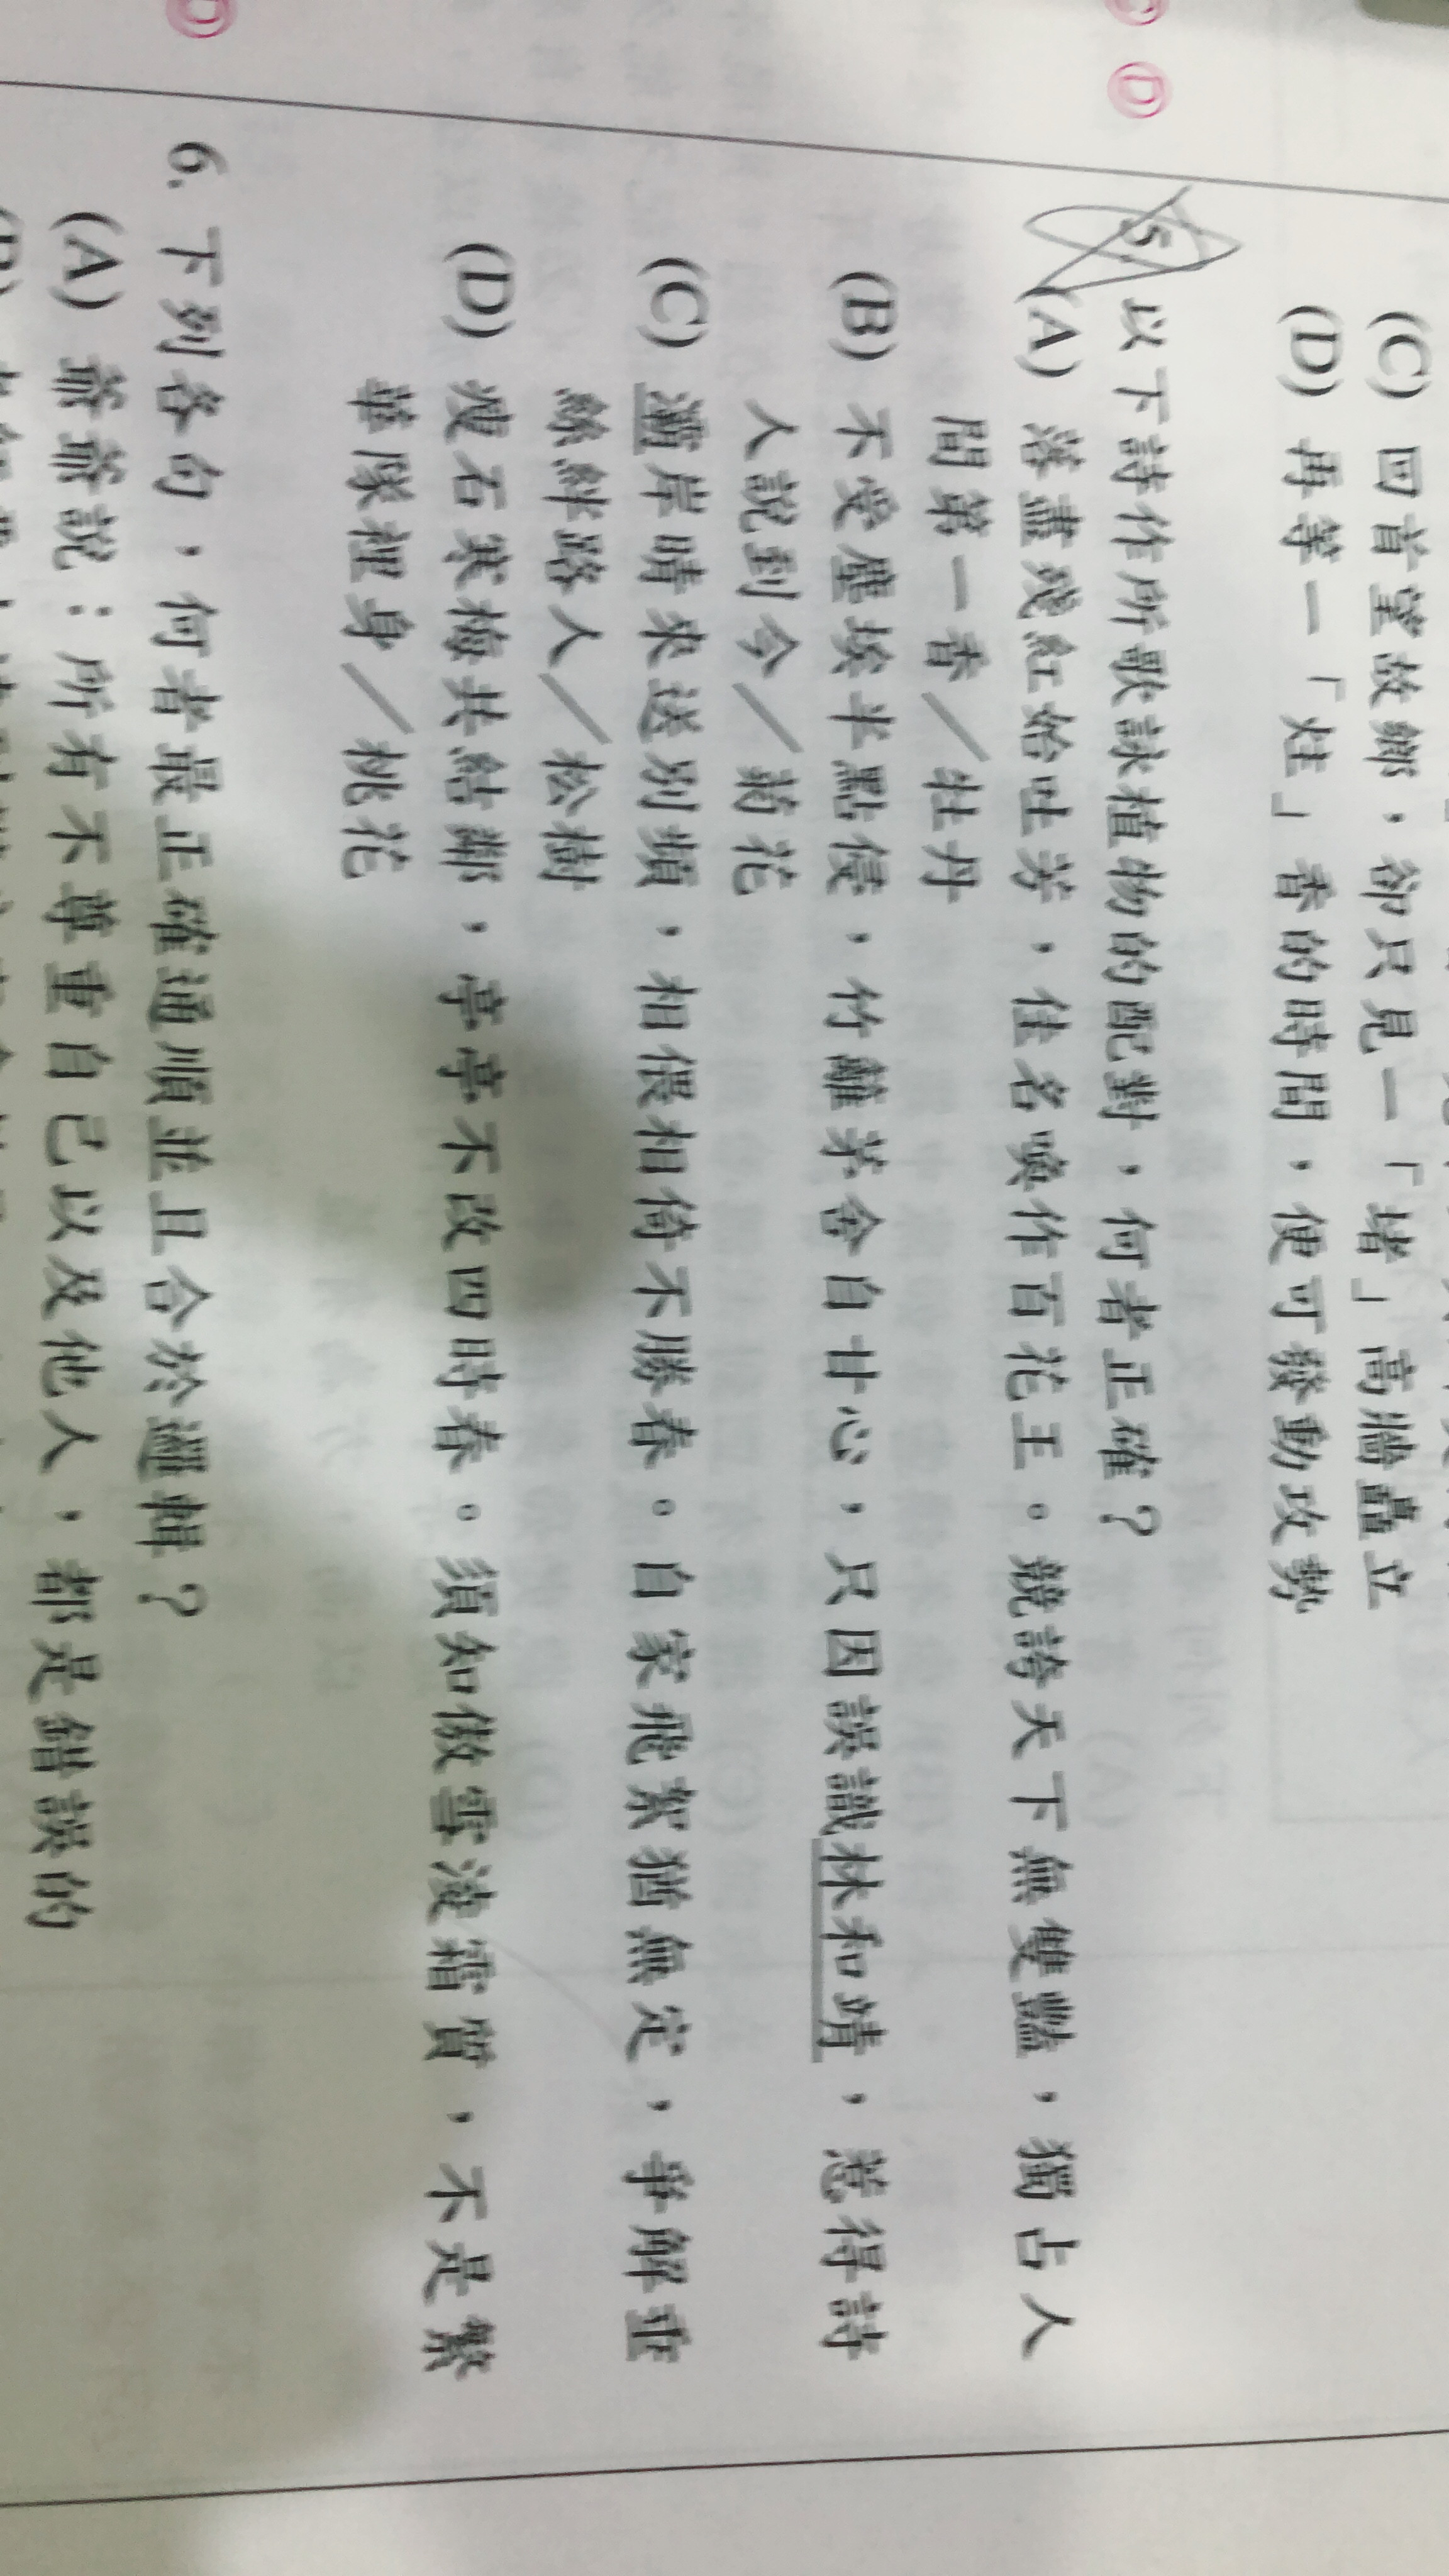 Ⓒ Ⓓ
Ⓓ
(C) 回首望故鄉，卻只見一「堵」高牆矗立
(D) 再等一「炷」香的時間，便可發動攻勢
5. 以下詩作所歌詠植物的配對，何者正確？
(A) 落盡殘紅始吐芳，佳名喚作百花王。競誇天下無雙豔，獨占人
間第一香／牡丹
(B) 不受塵埃半點侵，竹籬茅舍自甘心，只因誤識林和靖，惹得詩
人說到今／菊花
(C) 灞岸晴來送別頻，相偎相倚不勝春。自家飛絮猶無定，爭解垂
絲絆路人／松樹
(D) 瘦石寒梅共結鄰，亭亭不改四時春。須知傲雪淩霜質，不是繁
華隊裡身／桃花
6. 下列各句，何者最正確通順並且合於邏輯？
(A) 爺爺說：所有不尊重自己以及他人，都是錯誤的